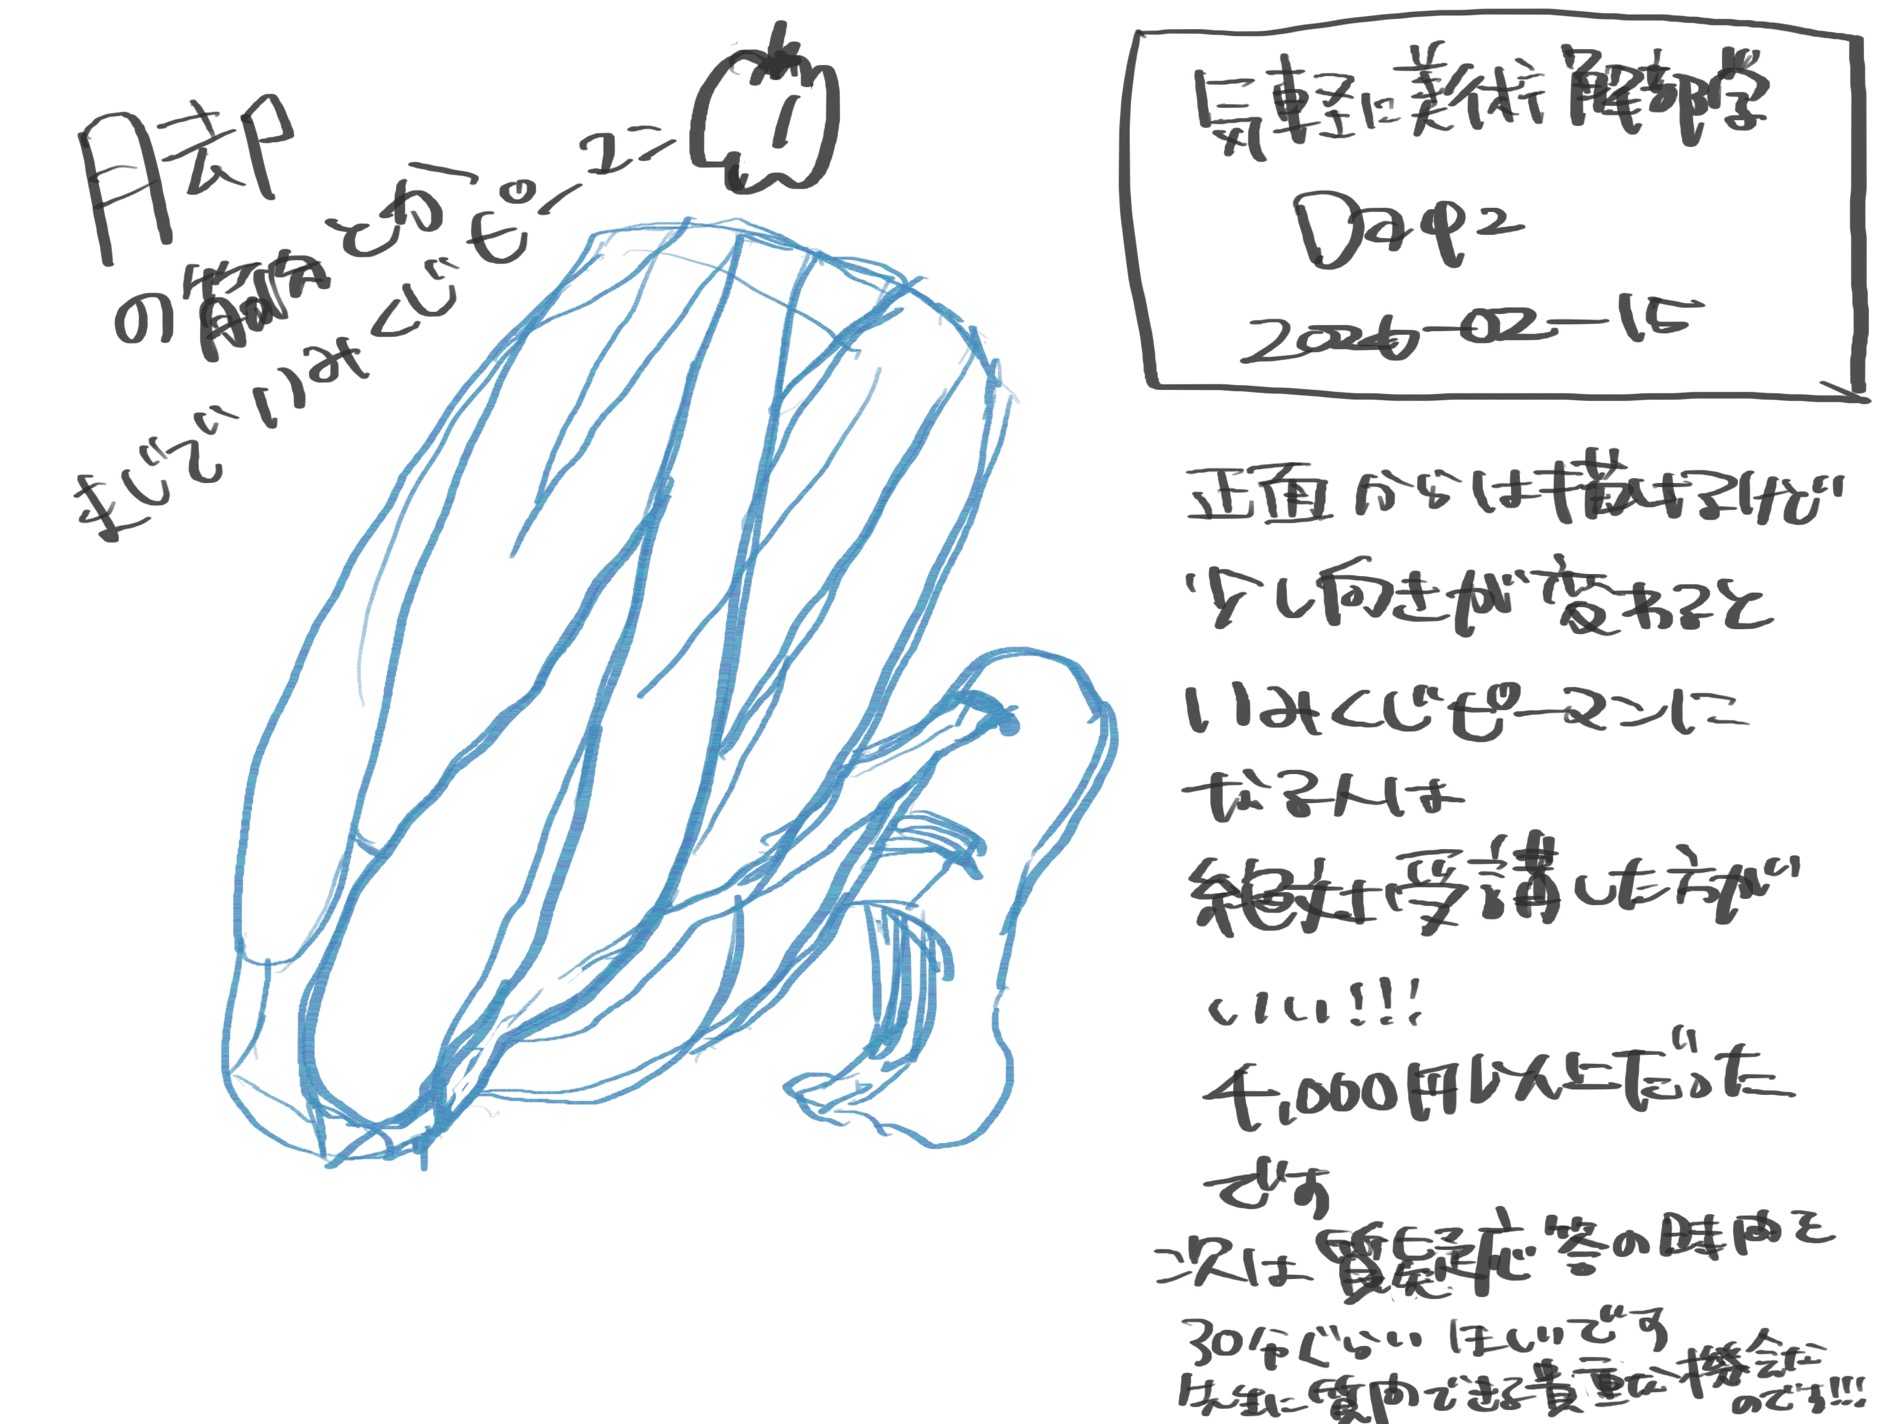 脚
の筋肉とか
まじでいみくじピーマン
気軽に美術解剖学
Day2
2026-02-15
正面からは描けるけど
少し向きが変わると
いみくじピーマンに
なる人は
絶対受講した方が
いい!!!
4,000円以上だった
です
次は質疑応答の時間を
30分ぐらいほしいです
先生に質問できる貴重な機会な
のです!!!